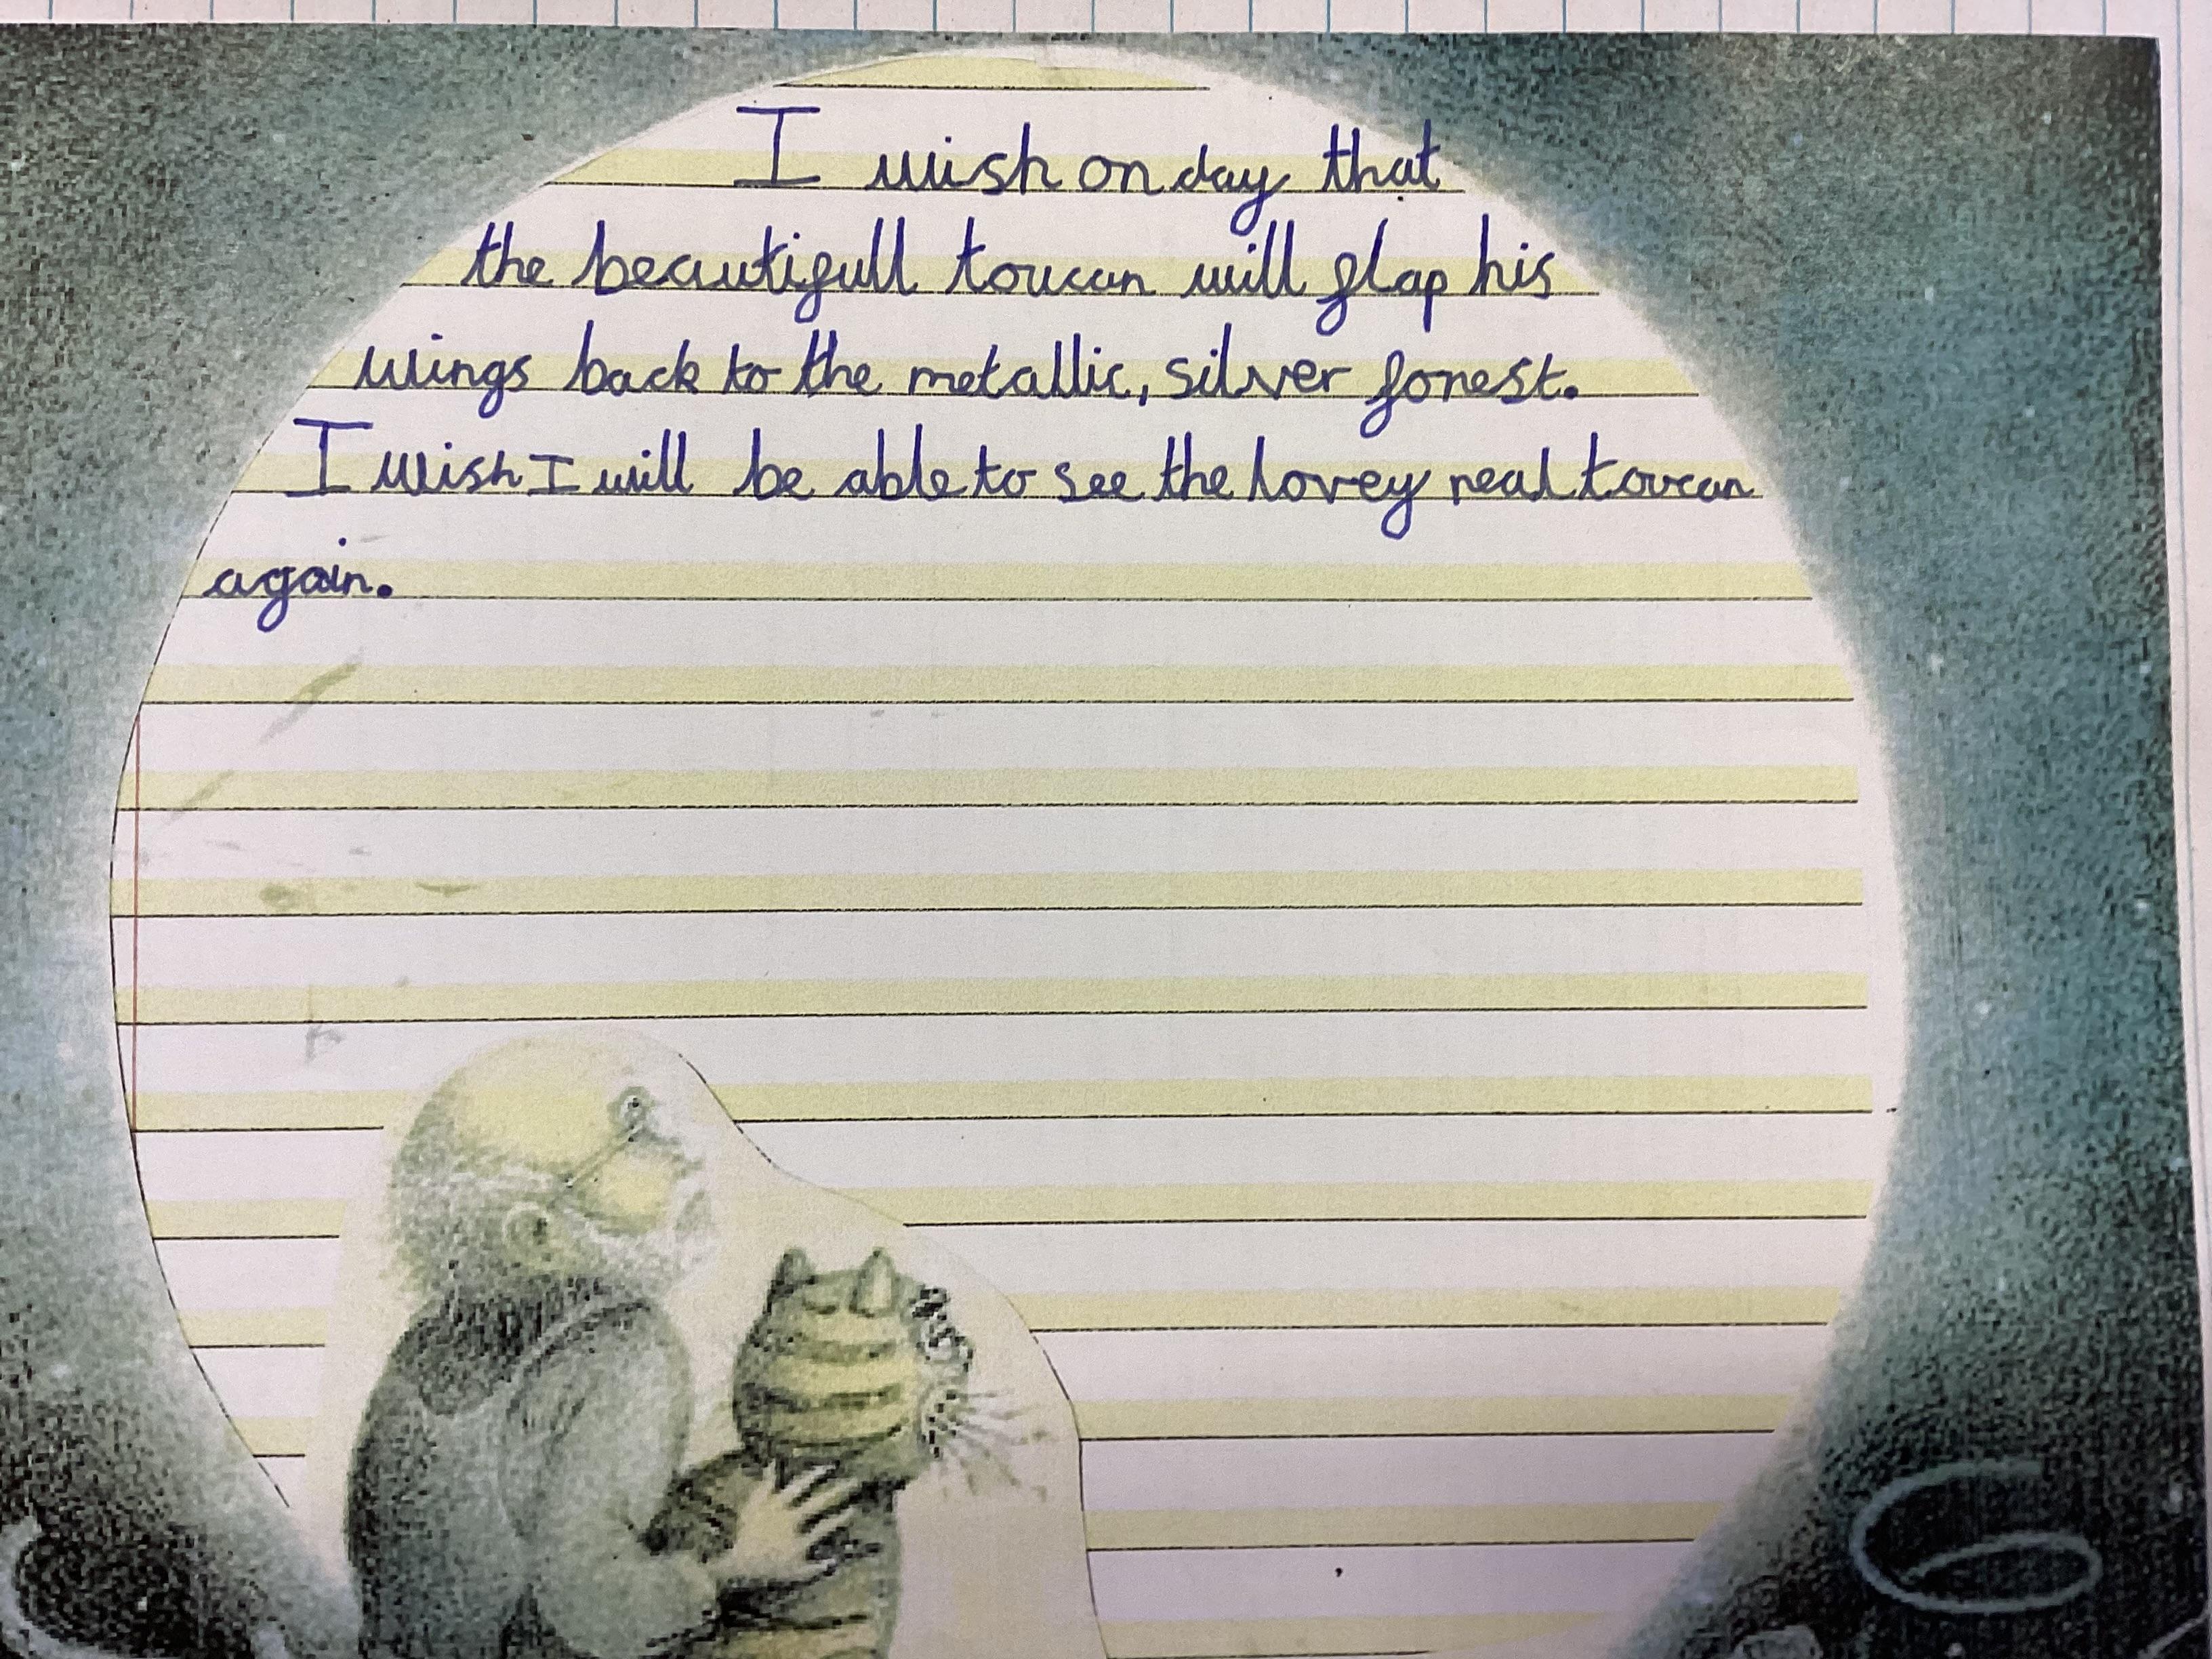 I wish on day that
the beautifull toucan will flap his
wings back to the metallic, silver forest.
I wish I will be able to see the lovey real toucan
again.